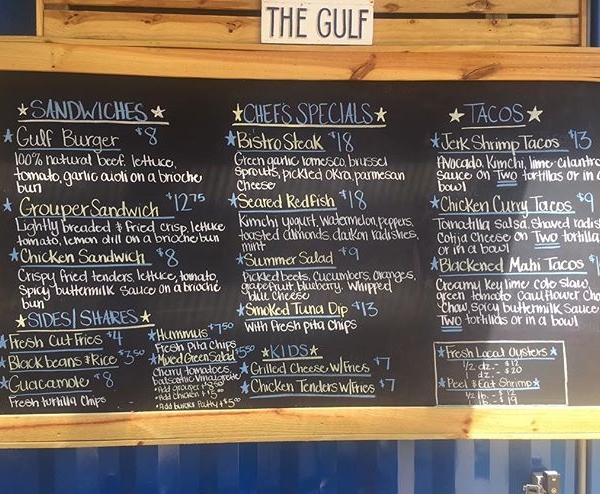 THE GULF
SANDWICHES
Gulf Burger $8
100% natural beef, lettuce,
tomato, garlic aioli on a brioche
bun
Grouper Sandwich $12.75
Lightly breaded & fried crisp, lettuce
tomato, lemon dill on a brioche bun
Chicken Sandwich $8
Crispy fried tenders, lettuce, tomato,
Spicy buttermilk sauce on a brioche
bun
SIDES/SHARES
Fresh Cut Fries $4
Black beans & Rice $3.50
Guacamole $8
Fresh tortilla Chips
Hummus $7.50
Fresh Pita Chips
Mixed Green Salad $5.50
Cherry tomatoes,
balsamic vinaigrette
Add grouper
Add chicken
Add burger Patty
CHEF'S SPECIALS
Bistro Steak $18
Green garlic romesco, brussel
sprouts, pickled okra, parmesan
cheese
Seared Redfish $18
Kimchi yogurt, watermelon, peppers,
toasted almonds, daikon radishes,
mint
Summer Salad $9
Pickled beets, cucumbers, oranges,
grapefruit, blueberry, whipped
blue cheese
Smoked Tuna Dip $13
With fresh pita chips
KIDS
Grilled Cheese w/Fries $7
Chicken Tenders w/Fries $7
TACOS
Jerk Shrimp Tacos $13
Avocado, Kimchi, lime-cilantro
sauce on Two tortillas or in a
bowl
Chicken Curry Tacos $9
Tomatilla salsa, shaved
Cotija Cheese on Two
or in a bowl
Blackened Mahi Tacos
Creamy key lime cole slaw,
green tomato cauliflower
Chow, spicy buttermilk
Two tortillas or in a bowl
Fresh Local Oysters
1/2 dz - $12
dz - $20
Peel & Eat Shrimp
1/2 lb -
lb - $19